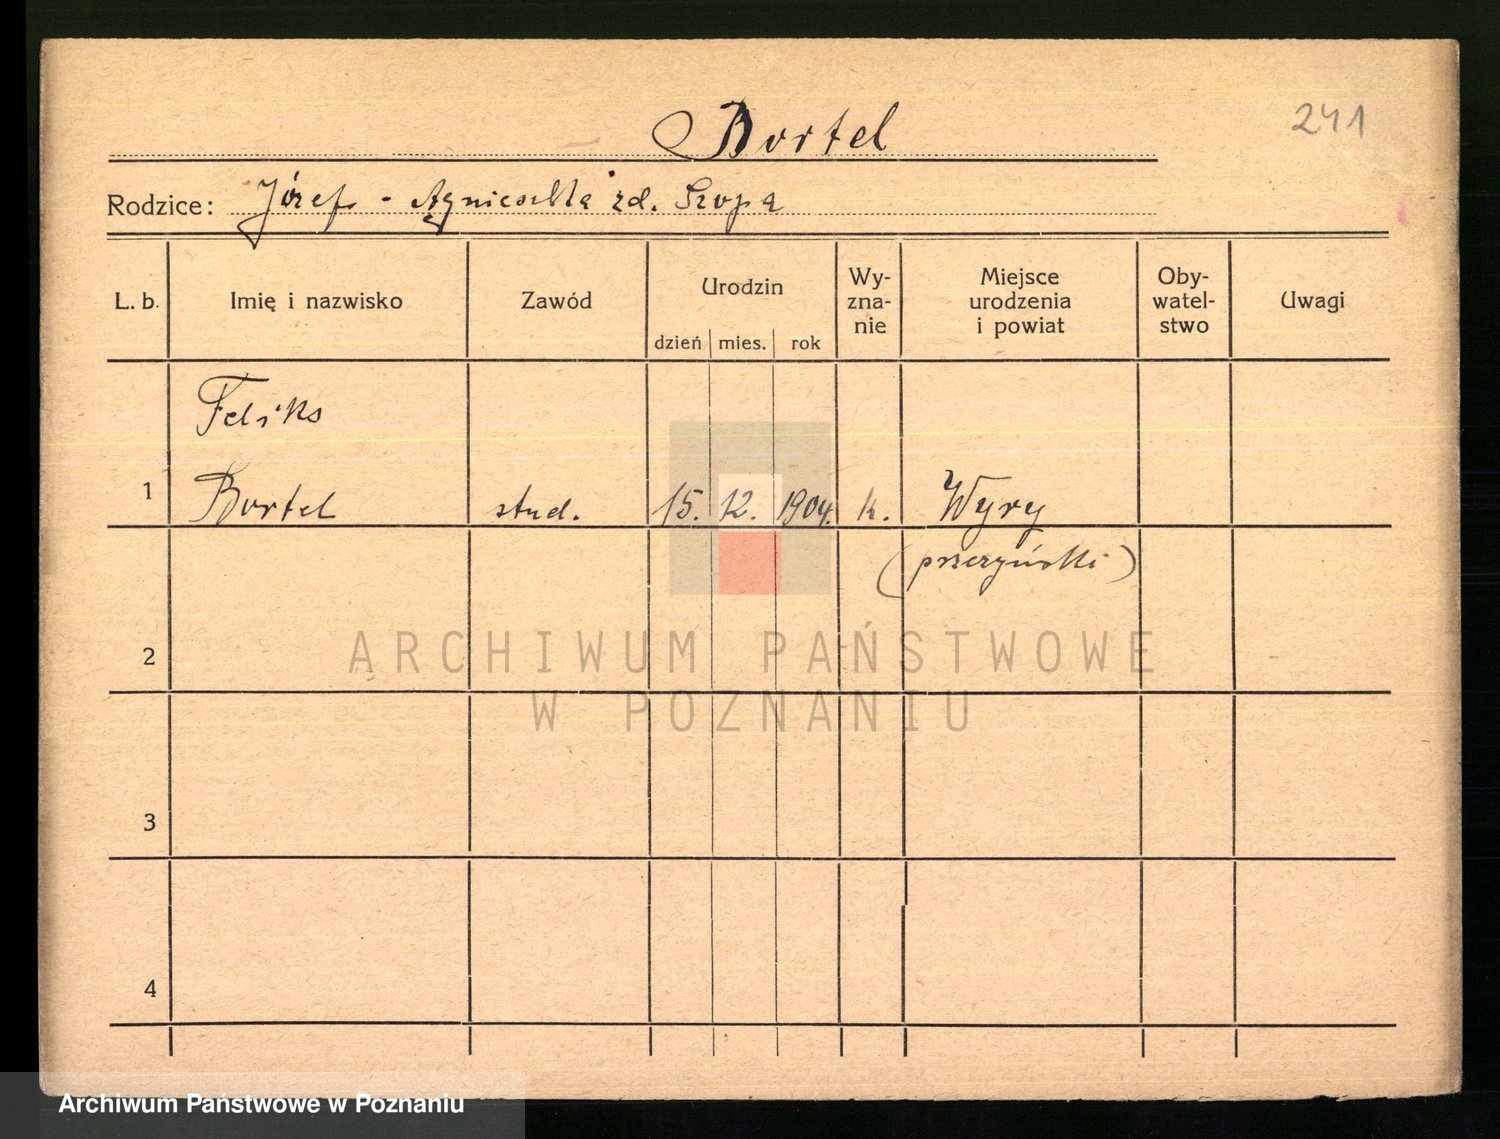 241
Bortel
Rodzice: Józef - Agnieszka zd. Szopa
L. b. Imię i nazwisko Zawód Urodzin dzień mies. rok Wy-zna-nie Miejsce urodzenia i powiat Oby-watel-stwo Uwagi
Feliks
1 Bortel stud. 15. 12. 1904. k. Wyry
(pszczyński)
2
3
4
ARCHIWUM PAŃSTWOWE
W POZNANIU
Archiwum Państwowe w Poznaniu